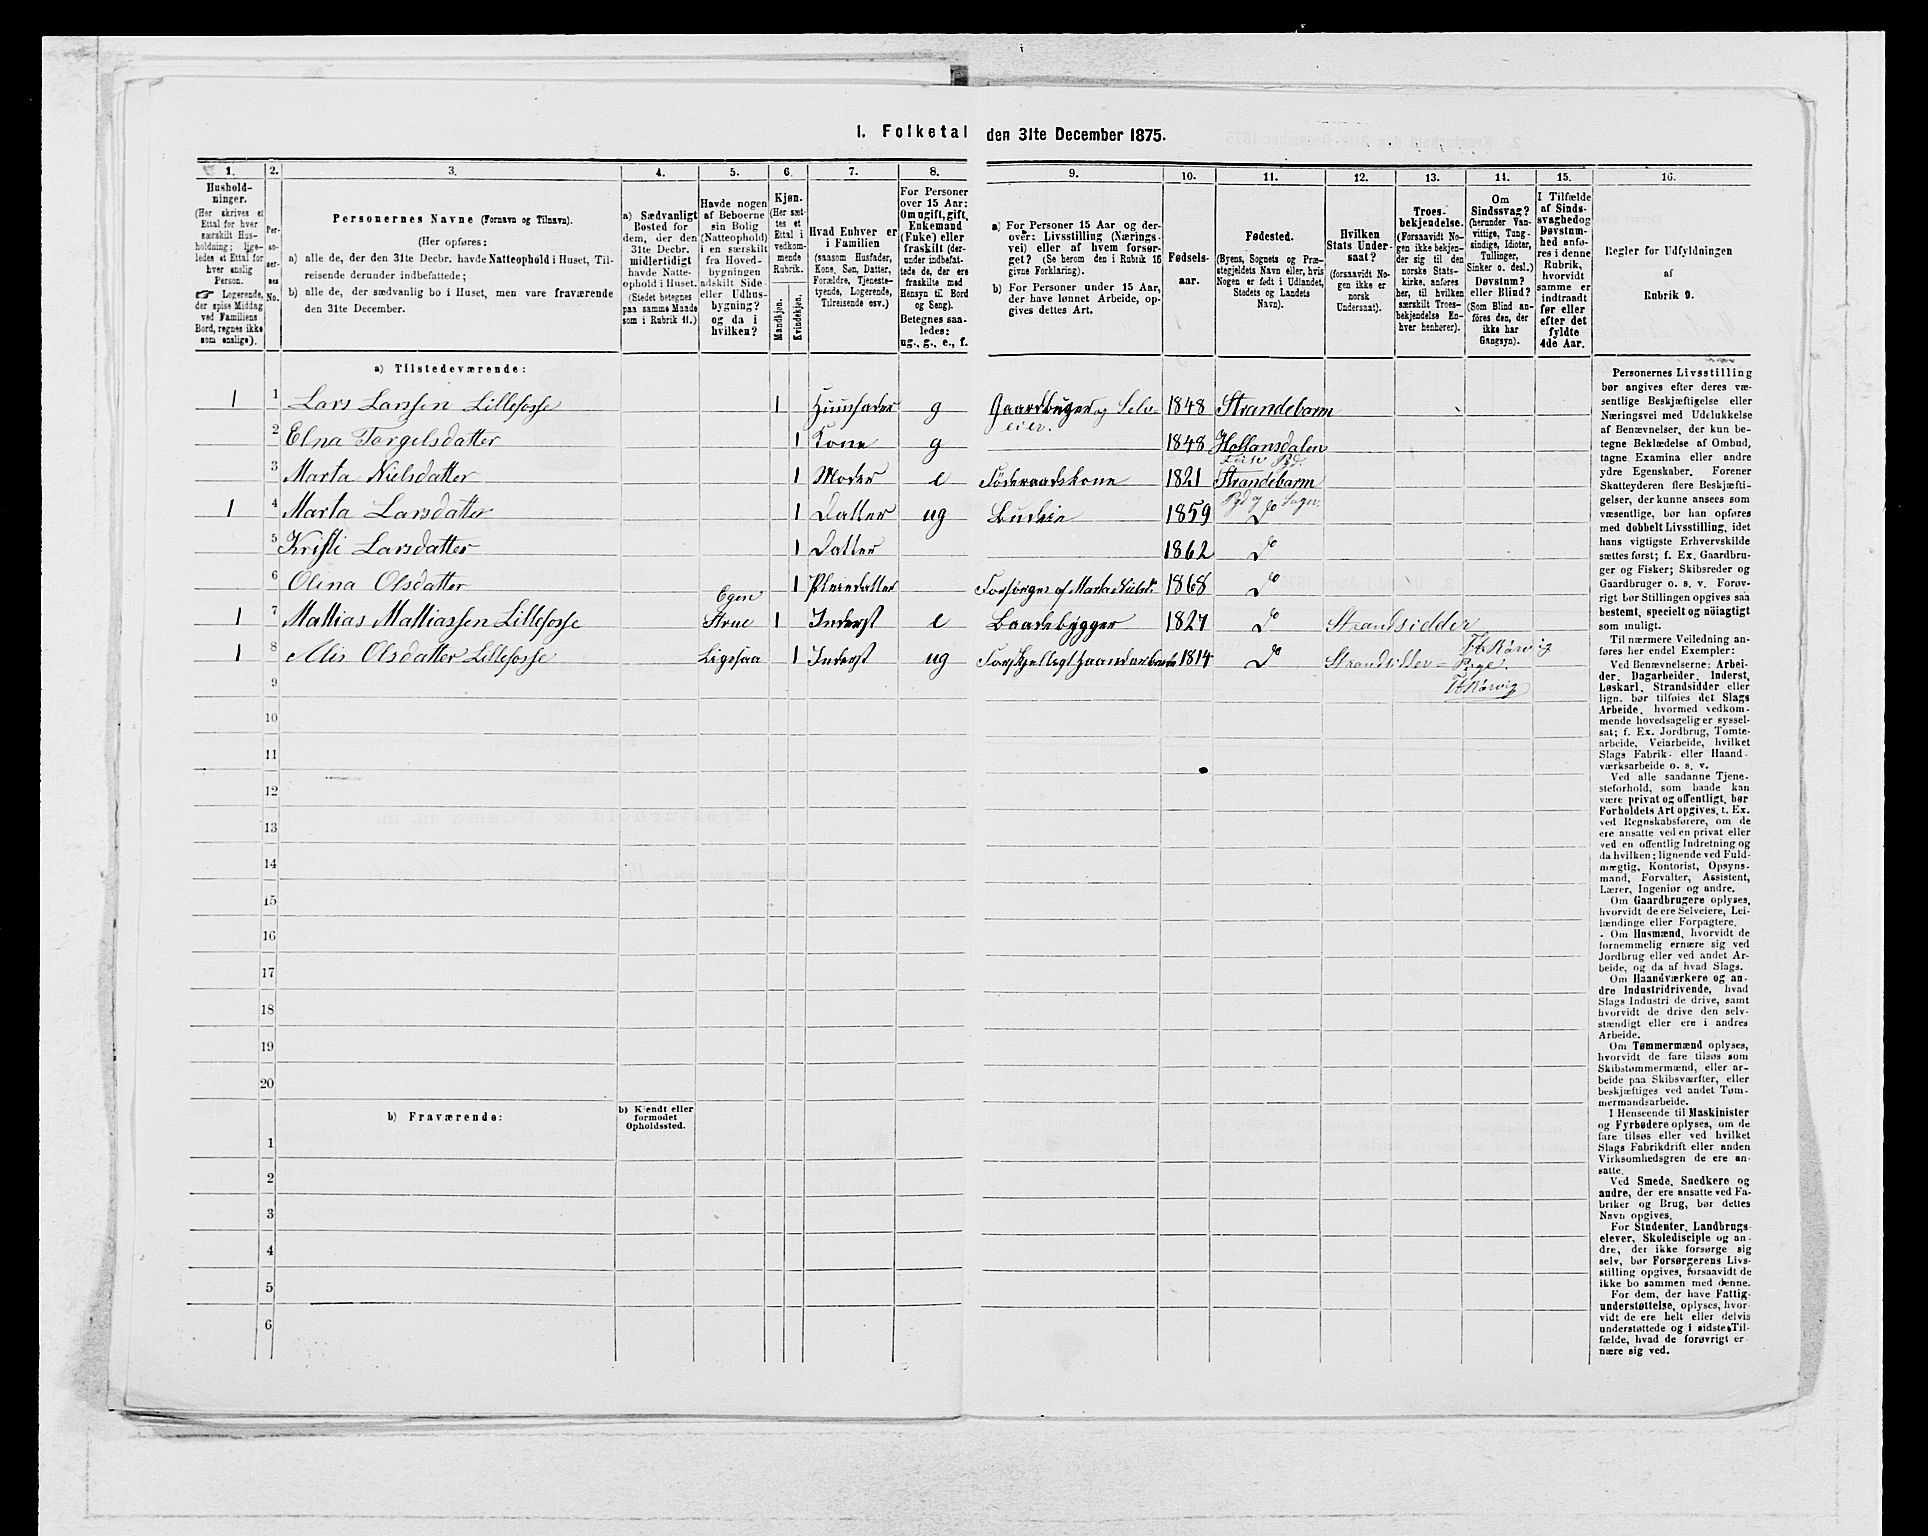 1. Folketal den 31te December 1875.
1. 2. 3. 4. 5. 6. 7. 8. 9. 10. 11. 12. 13. 14. 15. 16.
Hushold-
ninger.
(Her skrives et
Ettal for hver
særskilt Hus-
holdning; lige-
ledes et Ettal for
hver enslig
Person.
☞ Logerende,
der spise Middag
ved Familiens
Bord, regnes ikke
som enslige).
Per-
so-
ner-
nes
No.
Personernes Navne (Fornavn og Tilnavn).
(Her opføres:
a) alle de, der den 31te Decbr. havde Natteophold i Huset, Til-
reisende derunder indbefattede;
b) alle de, der sædvanlig bo i Huset, men vare fraværende
den 31te December.
a) Sædvanligt
Bosted for
dem, der den
31te Decbr.
midlertidigt
havde Natte-
ophold i Huset.
(Stedet betegnes
paa samme Maade
som i Rubrik 11.)
Havde nogen
af Beboerne
sin Bolig
(Natteophold)
i en særskilt
fra Hoved-
bygningen
adskilt Side-
eller Udhus-
bygning?
og da i
hvilken?
Kjøn.
(Her sæt-
tes et
Ettal i
vedkom-
mende
Rubrik.
Mandkjøn.
Kvindekjøn.
Hvad Enhver er
i Familien
(saasom Husfader,
Kone, Søn, Datter,
Forældre, Tjeneste-
tyende, Logerende,
Tilreisende osv.)
For Personer
over 15 Aar:
Om ugift, gift,
Enkemand
(Enke) eller
fraskilt (der-
under indbefat-
tede de, der ere
fraskilte med
Hensyn til Bord
og Seng).
Betegnes saa-
ledes:
ug., g., e., f.
a) For Personer 15 Aar og der-
over: Livsstilling (Nærings-
vei) eller af hvem forsør-
get? (Se herom den i Rubrik 16
givne Forklaring).
b) For Personer under 15 Aar,
der have lønnet Arbeide, op-
gives dettes Art.
Fødsels-
aar.
Fødested.
(Byens, Sognets og Præ-
stegjeldets Navn eller, hvis
Nogen er født i Udlandet,
Stedets og Landets
Navn).
Hvilken
Stats Under-
saat?
(forsaavidt No-
gen ikke er
norsk
Undersaat).
Troes-
bekjendelse.
(Forsaavidt No-
gen ikke bekjen-
der sig til den
norske Stats-
kirke, anføres
her, til hvilken
særskilt Troes-
bekjendelse En-
hver henhører).
Om
Sindssvag?
(herunder Van-
vittige, Tung-
sindige, Idioter,
Tullinger,
Sinker o. desl.)
Døvstum?
eller Blind?
(Som Blind an-
føres den, der
ikke har
Gangsyn).
I Tilfælde
af Sinds-
svaghed og
Døvstum-
hed anfø-
res i denne
Rubrik,
hvorvidt
samme er
indtraadt
før eller
efter det
fyldte
4de Aar.
Regler for Udfyldningen
af
Rubrik 9.
a) Tilstedeværende:
1 1 Lars Larsen Lillefosse 1 Huusfader g Gaardbruger og Selv-eier. 1848 Strandebarm
2 Elna Torgelsdatter 1 Kone g 1848
3 Marta Nielsdatter 1 Moder e Föderaadskone 1821 Strandebarm
1 4 Marta Larsdatter 1 Datter ug Budeie 1859 Do
5 Kristi Larsdatter 1 Datter 1862 Do
6 Olina Olsdatter 1 Pleiedatter Forsörges af Marta Nielsd. 1868 Do
1 7 Mathias Mathiassen Lillefosse Egen Stue 1 Inderst e Baadebygger 1827 Do Strandsidder
1 8 Olsdatter Lillefosse Ligesaa 1 Inderst ug 1814 Do Strandsidder
9
10
11
12
13
14
15
16
17
18
19
20
b) Fraværende:
b) Kjendt eller
formodet
Opholdssted.
1
2
3
4
5
6
Personernes Livsstilling
bør angives efter deres væ-
sentlige Beskjæftigelse eller
Næringsvei med Udelukkelse
af Benævnelser, der kun be-
tegne Beklædelse af Ombud,
tagne Examina eller andre
ydre Egenskaber. Forener
Skatteyderen flere Beskjæfti-
gelser, der kunne ansees som
væsentlige, bør han opføres
med dobbelt Livsstilling, idet
hans vigtigste Erhvervskilde
sættes først; f. Ex. Gaardbru-
ger og Fisker; Skibsreder og
Gaardbruger o. s. v. Forøv-
rigt bør Stillingen opgives saa
bestemt, specielt og nøiagtigt
som muligt.
Til nærmere Veiledning an-
føres her endel Exempler:
Ved Benævnelserne: Arbei-
der, Dagarbeider, Inderst,
Løskarl, Strandsidder eller
lign. bør tilføies det Slags
Arbeide, hvormed vedkom-
mende hovedsagelig er syssel-
sat; f. Ex. Jordbrug, Tomte-
arbeide, Veiarbeide, hvilket
Slags Fabrik- eller Haand-
værksarbeide o. s. v.
Ved alle saadanne Tjene-
steforhold, som baade kan
være privat og offentligt, bør
Forholdets Art opgives, t. Ex.
ved Regnskabsførere, om de
ere ansatte ved en privat eller
ved en offentlig Indretning og
da hvilken; lignende ved Fuld-
mægtig, Kontorist, Opsyns-
mand, Forvalter, Assistent,
Lærer, Ingeniør og andre.
Om Gaardbrugere oplyses,
hvorvidt de ere Selveiere, Lei-
lændinge eller Forpagtere.
Om Husmænd, hvorvidt de
fornemmelig ernære sig ved
Jordbrug eller ved andet Ar-
beide, og da af hvad Slags.
Om Haandværkere og an-
dre Industridrivende, hvad
Slags Industri de drive, samt
hvorvidt de drive den selv-
stændigt eller ere i andres
Arbeide.
Om Tømmermænd oplyses,
hvorvidt de fare tilsøs som
Skibstømmermænd, eller ar-
beide paa Skibsværfter, eller
beskjæftiges ved andet Tøm-
mermandsarbeide.
I Henseende til Maskinister
og Fyrbødere oplyses, om de
fare tilsøs eller ved hvilket
Slags Fabrikdrift eller anden
Virksomhedsgren de ere an-
satte.
Ved Smede, Snedkere og
andre, der ere ansatte ved Fa-
briker og Brug, bør dettes
Navn opgives.
For Studenter, Landbrugs-
elever, Skoledisciple og an-
dre, der ikke forsørge sig
selv, bør Forsørgerens Livs-
stilling opgives, forsaavidt de
ikke bo sammen med denne.
For dem, der have Fattig-
understøttelse, oplyses, hvor-
vidt de ere helt eller delvis
understøttede og i sidste Til-
fælde, hvad de forøvrigt er-
nære sig ved.